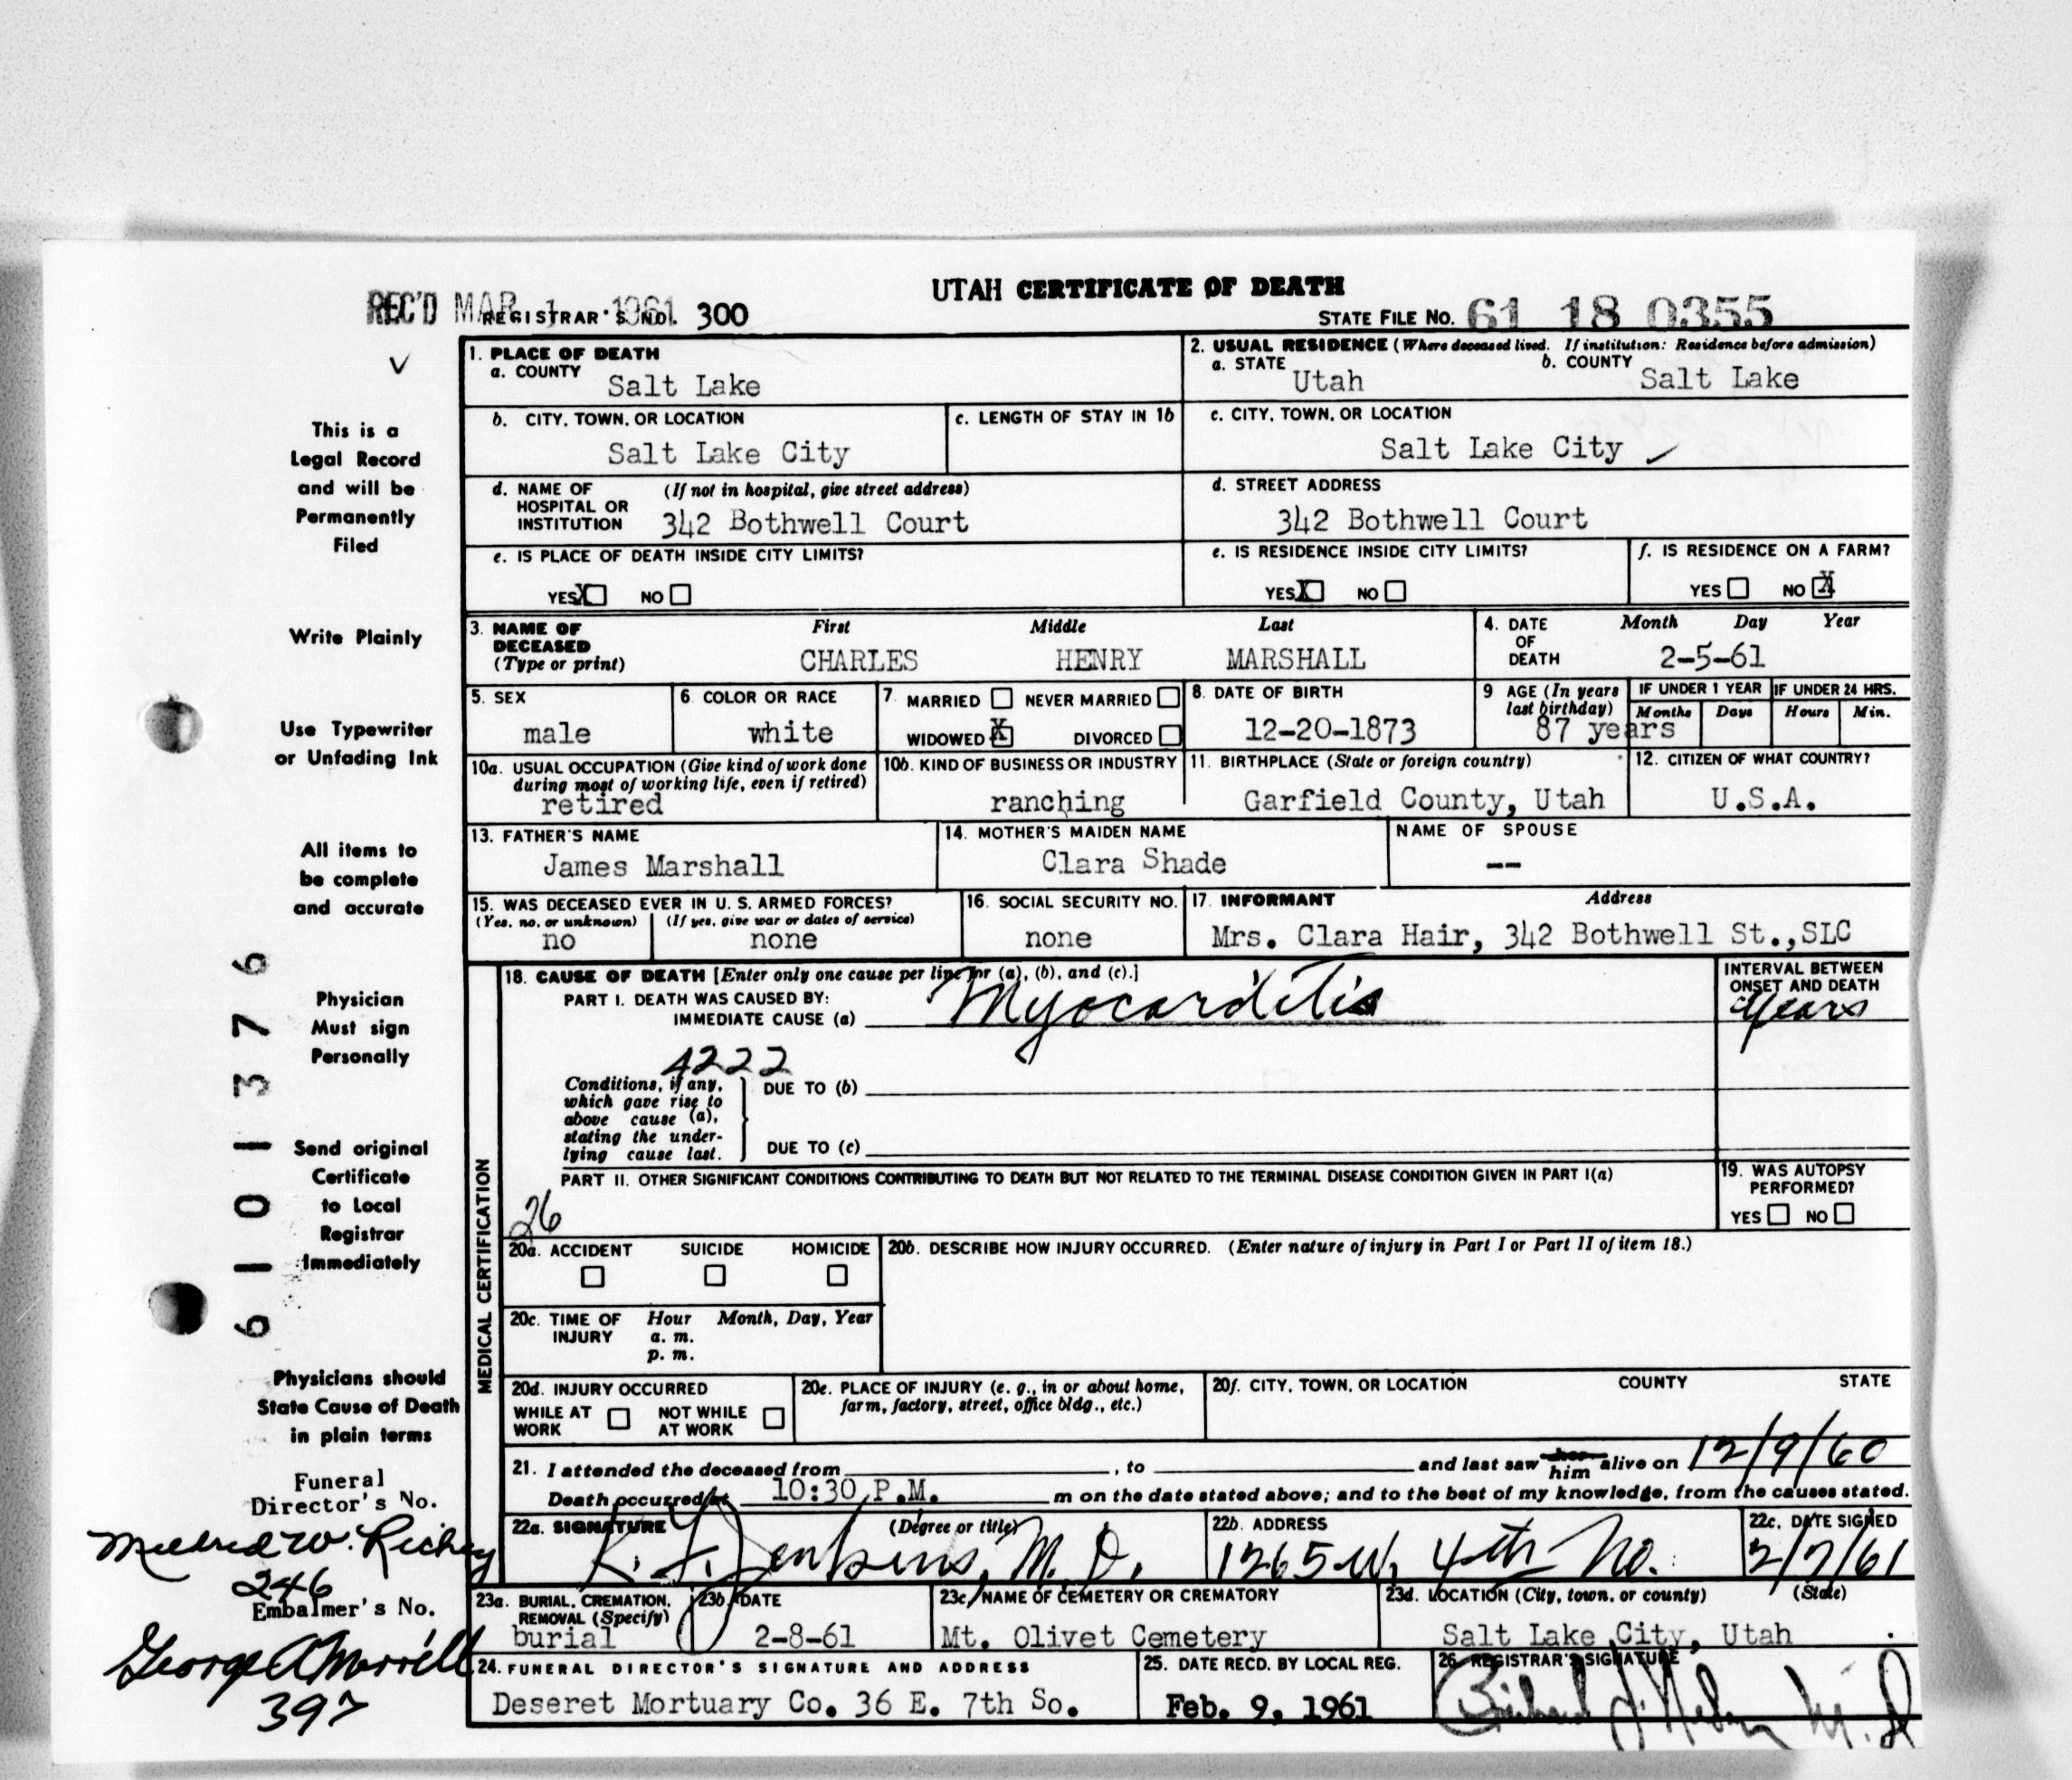 UTAH CERTIFICATE OF DEATH
REC'D MAR 1 1961 REGISTRAR'S NO. 300
STATE FILE NO. 61 18 0355
This is a
Legal Record
and will be
Permanently
Filed
Write Plainly
Use Typewriter
or Unfading Ink
All items to
be complete
and accurate
Physician
Must sign
Personally
Send original
Certificate
to Local
Registrar
Immediately
Physicians should
State Cause of Death
in plain terms
Funeral
Director's No.
Mildred W. Richey
246
Embalmer's No.
George A Morrill
397
6101376
1. PLACE OF DEATH
a. COUNTY
Salt Lake
2. USUAL RESIDENCE (Where deceased lived. If institution: Residence before admission)
a. STATE Utah b. COUNTY Salt Lake
b. CITY, TOWN, OR LOCATION
Salt Lake City
c. LENGTH OF STAY IN 1b
c. CITY, TOWN, OR LOCATION
Salt Lake City
d. NAME OF HOSPITAL OR INSTITUTION (If not in hospital, give street address)
342 Bothwell Court
d. STREET ADDRESS
342 Bothwell Court
e. IS PLACE OF DEATH INSIDE CITY LIMITS?
YES X NO
e. IS RESIDENCE INSIDE CITY LIMITS?
YES X NO
f. IS RESIDENCE ON A FARM?
YES NO X
3. NAME OF DECEASED (Type or print)
First Middle Last
CHARLES HENRY MARSHALL
4. DATE OF DEATH Month Day Year
2-5-61
5. SEX
male
6. COLOR OR RACE
white
7. MARRIED NEVER MARRIED
WIDOWED X DIVORCED
8. DATE OF BIRTH
12-20-1873
9 AGE (In years last birthday)
87 years
IF UNDER 1 YEAR IF UNDER 24 HRS.
Months Days Hours Min.
10a. USUAL OCCUPATION (Give kind of work done during most of working life, even if retired)
retired
10b. KIND OF BUSINESS OR INDUSTRY
ranching
11. BIRTHPLACE (State or foreign country)
Garfield County, Utah
12. CITIZEN OF WHAT COUNTRY?
U.S.A.
13. FATHER'S NAME
James Marshall
14. MOTHER'S MAIDEN NAME
Clara Shade
NAME OF SPOUSE
--
15. WAS DECEASED EVER IN U. S. ARMED FORCES?
(Yes, no, or unknown) (If yes, give war or dates of service)
no none
16. SOCIAL SECURITY NO.
none
17. INFORMANT Address
Mrs. Clara Hair, 342 Bothwell St.,SLC
MEDICAL CERTIFICATION
18. CAUSE OF DEATH [Enter only one cause per line for (a), (b), and (c).]
PART I. DEATH WAS CAUSED BY:
IMMEDIATE CAUSE (a) Myocarditis
INTERVAL BETWEEN ONSET AND DEATH
years
4222
Conditions, if any, which gave rise to above cause (a), stating the underlying cause last.
DUE TO (b)
DUE TO (c)
PART II. OTHER SIGNIFICANT CONDITIONS CONTRIBUTING TO DEATH BUT NOT RELATED TO THE TERMINAL DISEASE CONDITION GIVEN IN PART I(a)
26
19. WAS AUTOPSY PERFORMED?
YES NO
20a. ACCIDENT SUICIDE HOMICIDE
20b. DESCRIBE HOW INJURY OCCURRED. (Enter nature of injury in Part I or Part II of item 18.)
20c. TIME OF INJURY Hour Month, Day, Year
a. m.
p. m.
20d. INJURY OCCURRED
WHILE AT WORK NOT WHILE AT WORK
20e. PLACE OF INJURY (e. g., in or about home, farm, factory, street, office bldg., etc.)
20f. CITY, TOWN, OR LOCATION COUNTY STATE
21. I attended the deceased from , to and last saw her him alive on 12/9/60
Death occurred at 10:30 P.M. m on the date stated above; and to the best of my knowledge, from the causes stated.
22a. SIGNATURE (Degree or title)
Jenkins, M. D.
22b. ADDRESS
1265 W. 4th No.
22c. DATE SIGNED
2/7/61
23a. BURIAL, CREMATION, REMOVAL (Specify)
burial
23b. DATE
2-8-61
23c. NAME OF CEMETERY OR CREMATORY
Mt. Olivet Cemetery
23d. LOCATION (City, town, or county) (State)
Salt Lake City, Utah
24. FUNERAL DIRECTOR'S SIGNATURE AND ADDRESS
Deseret Mortuary Co. 36 E. 7th So.
25. DATE RECD. BY LOCAL REG.
Feb. 9, 1961
26. REGISTRAR'S SIGNATURE
M. D